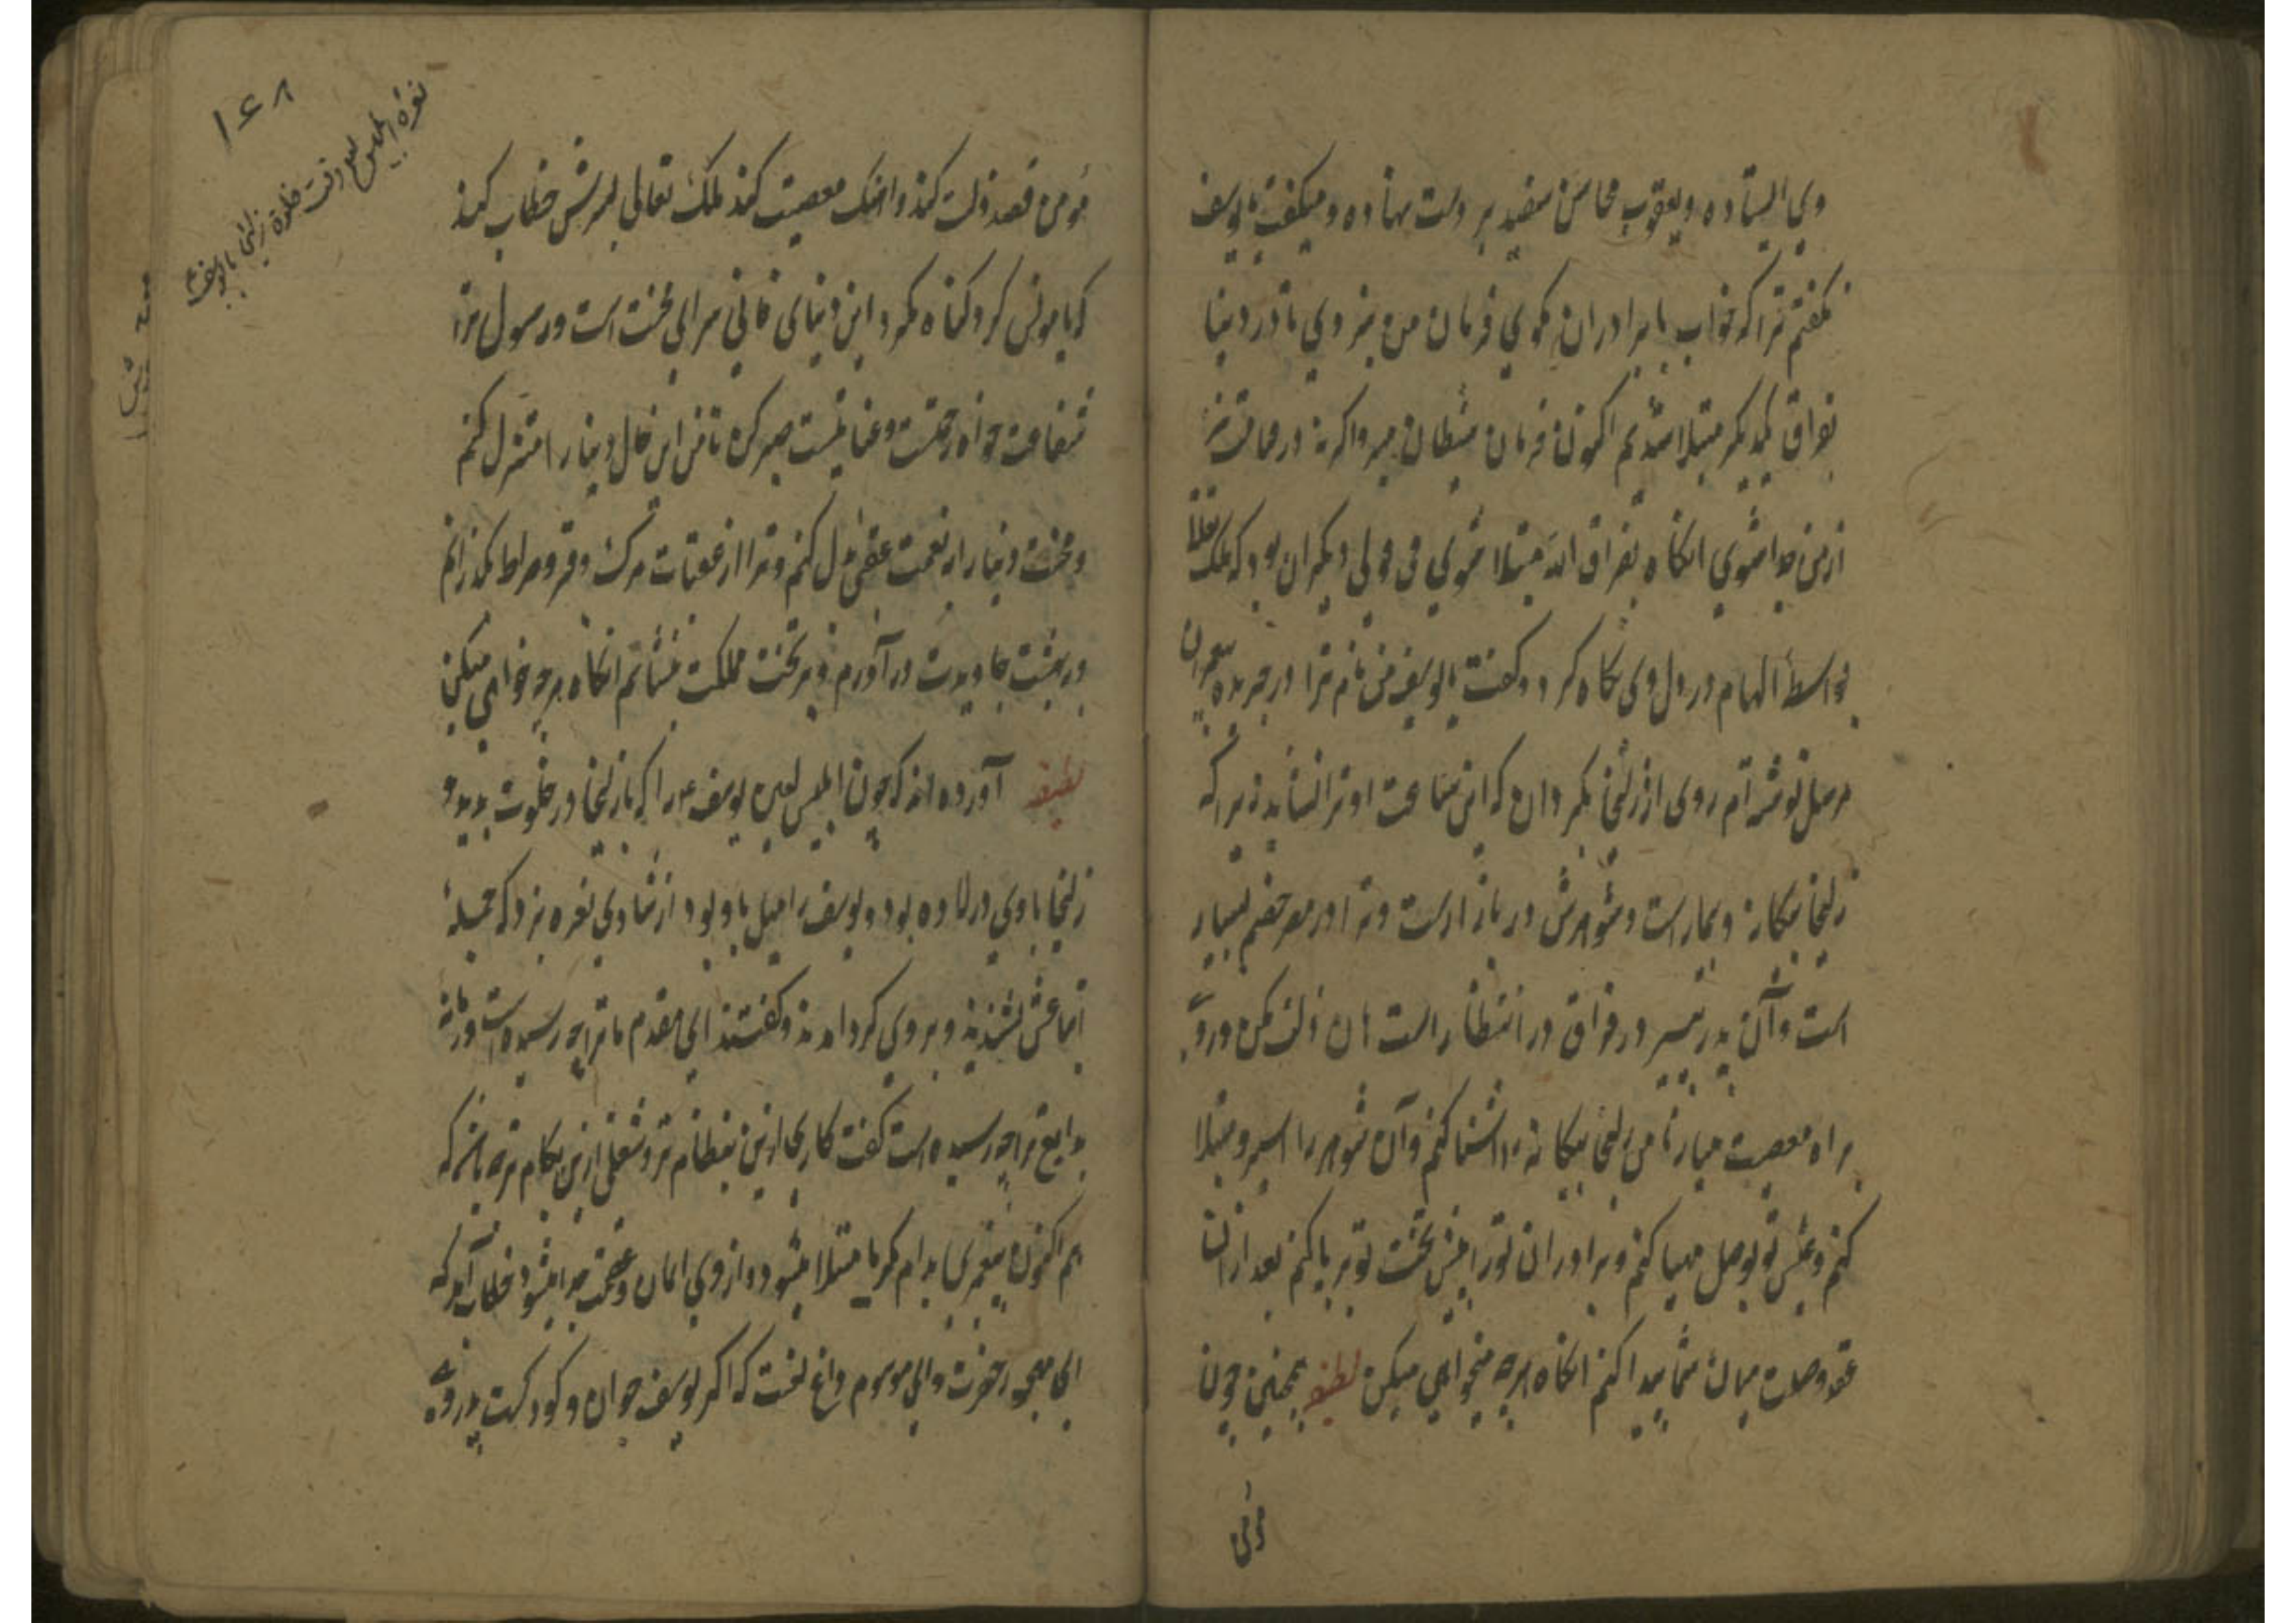 وی ایستاده و یعقوب محاسن سفید بر دست نهاده و میکفت یا یوسف
نکفتم ترا که خواب با برادران مکوی فرمان من نبردی تا در دنیا
بفراق یکدیکر مبتلا شدیم اکنون فرمان شیطان مبر و اکر نه در قیامت نیز
از من جدا شوی انکاه بفراق الله مبتلا شوی قولی دیکران بود که ملک تعالی
بواسطهٔ الهام در دل وی نکاه کرد و کفت یا یوسف من نام ترا در جریده پیغمبران
مرسل نوشته‌ام روی از زلیخا بکردان که این ساعت او ترا نشاید زیرا که
زلیخا بیکانه و بیمارست و شوهرش در بازارست و ترا در معرض خصم بسیار
است و آن پدر پیر در فراق در انتظار است هان زلت مکن و روی
براه معصیت میار تا من زلیخا بیکانه را آشنا کنم و آن شوهر را اسیر و مبتلا
کنم و عیش تو بوصل مهیا کنم و برادران تو را پیش تخت تو برپا کنم بعد از ان
عقد وصلت میان شما پیدا کنم انکاه هرچه میخواهی میکن لطیفه همچنین چون
مؤمن
١٤٨
نعرهٔ ابلیس وقت خلوة زلیخا با یوسف
مؤمن قصد زلت کند و اهنک معصیت کند ملک تعالی بسرش خطاب کند
که یا مومن کرد کناه مکرد این دنیای فانی سرای محنت است و رسول ترا
شفاعت خواه رحمتست و عنا نیست صبر کن تا من این حال دنیا را منزل کنم
و محنت دنیا را بنعمت عقبی بدل کنم و ترا از عقبات مرک و قبر و صراط بکذرانم
در بهشت جاویدت درآورم و بر تخت مملکت بنشانم انکاه هرچه خواهی میکن
لطیفه آورده اند که چون ابلیس لعین یوسف را که با زلیخا در خلوت بدید و
زلیخا با وی درداده بود و یوسف را میل با او بود از شادی نعره بزد که جمیله
اتباعش بشنیدند و بر وی کرد آمدند و کفتند ای مقدم ما ترا چه رسیده است و زمانه
بدایع ترا چه رسیده است کفت کاری ازین بنظام تر و شغلی ازین بکام تر چه باشد که
هم اکنون پیغمبری بدام کرما مبتلا میشود و از وی ایمان و عصمت جدا میشود خطاب آمد که
ای مهجور حضرت و ای موسوم داغ لعنت که اکر یوسف جوان و کودکست پدر وی